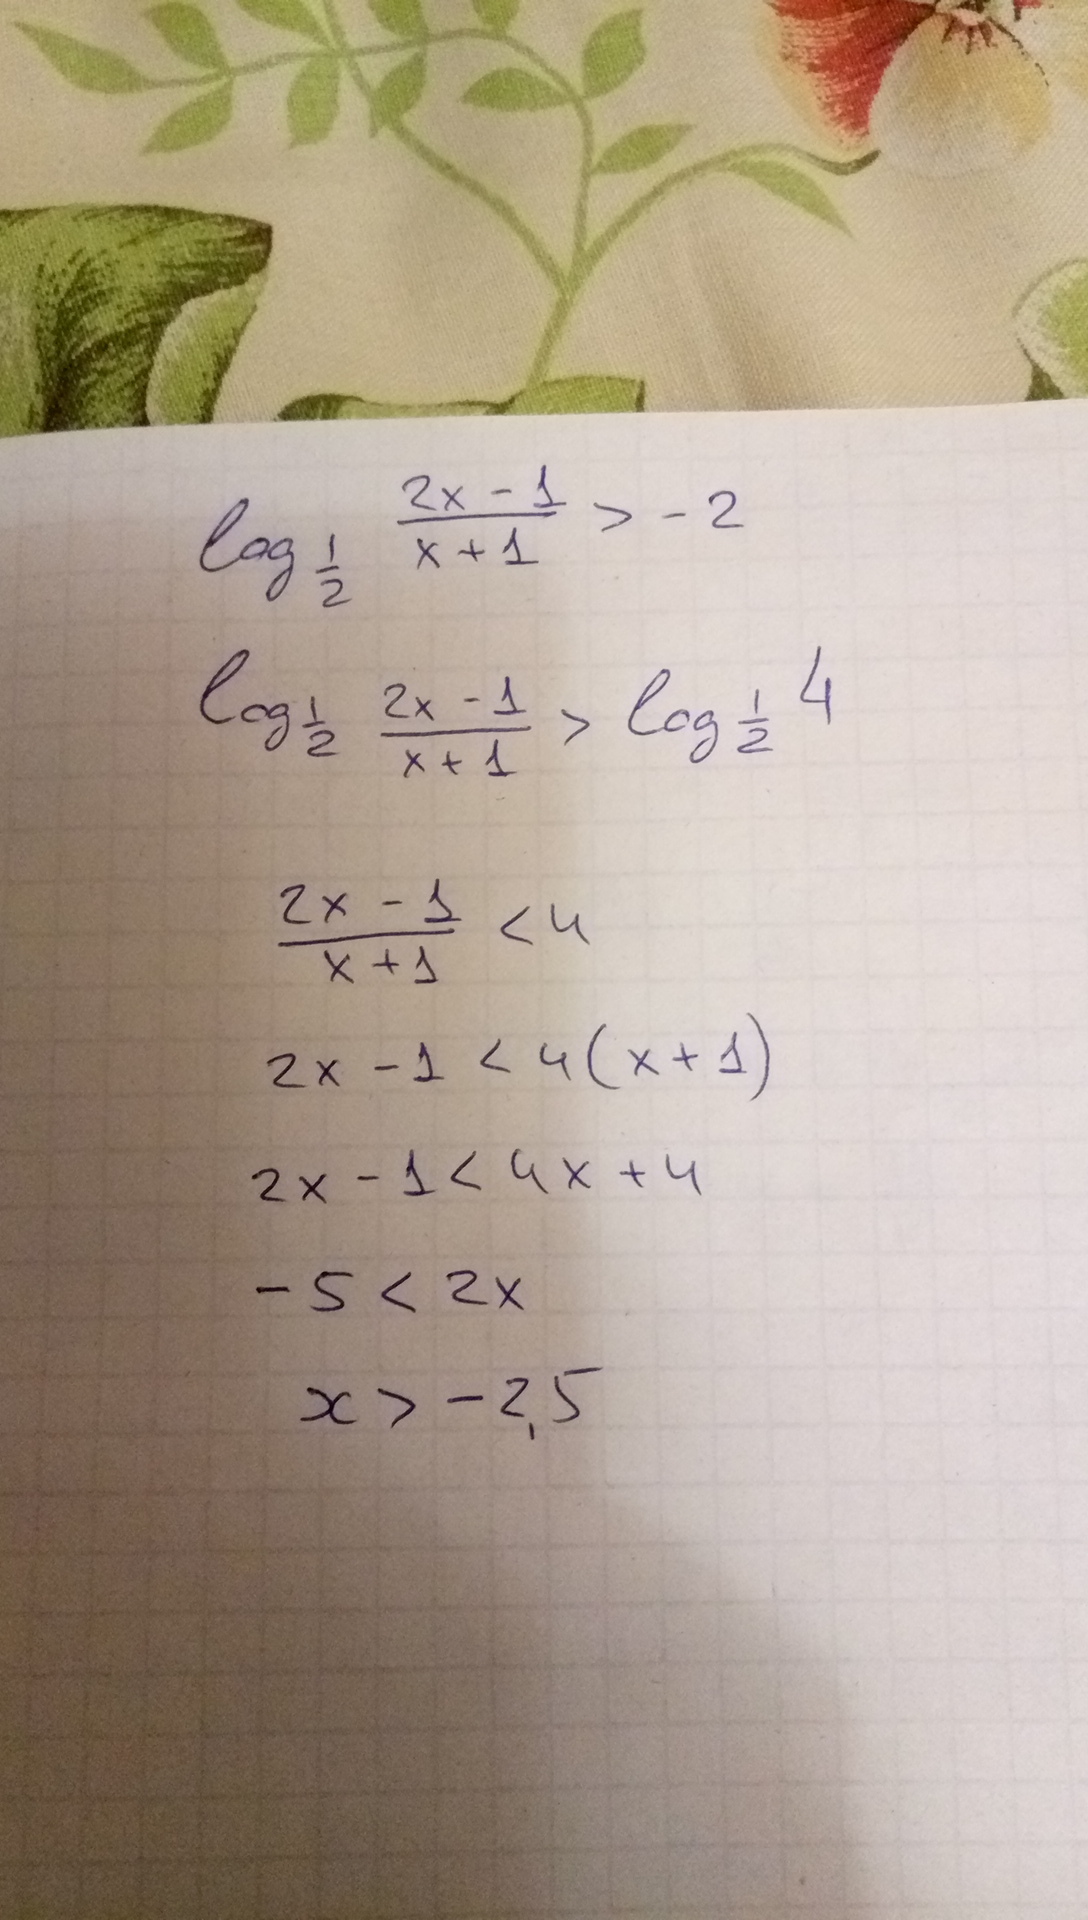 log_{1/2} (2x - 1)/(x + 1) > -2
log_{1/2} (2x - 1)/(x + 1) > log_{1/2} 4
(2x - 1)/(x + 1) < 4
2x - 1 < 4(x + 1)
2x - 1 < 4x + 4
-5 < 2x
x > -2,5